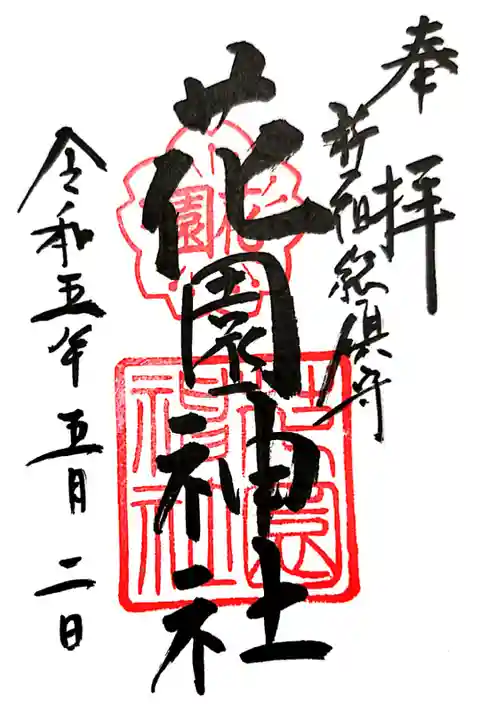 奉拝
新宿総鎮守
花園神社
花園
花園神社
令和五年五月二日